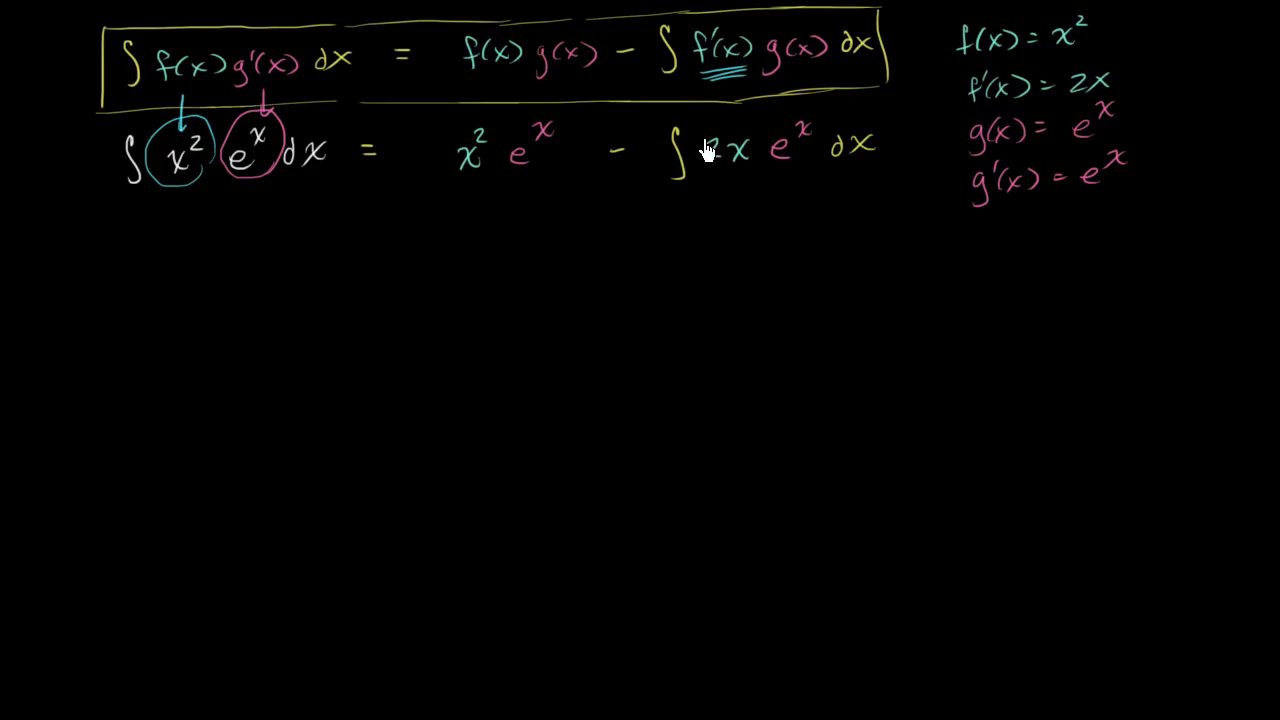 ∫ f(x) g'(x) dx = f(x) g(x) - ∫ f'(x) g(x) dx
∫ x² eˣ dx = x² eˣ - ∫ 2x eˣ dx
f(x) = x²
f'(x) = 2x
g(x) = eˣ
g'(x) = eˣ